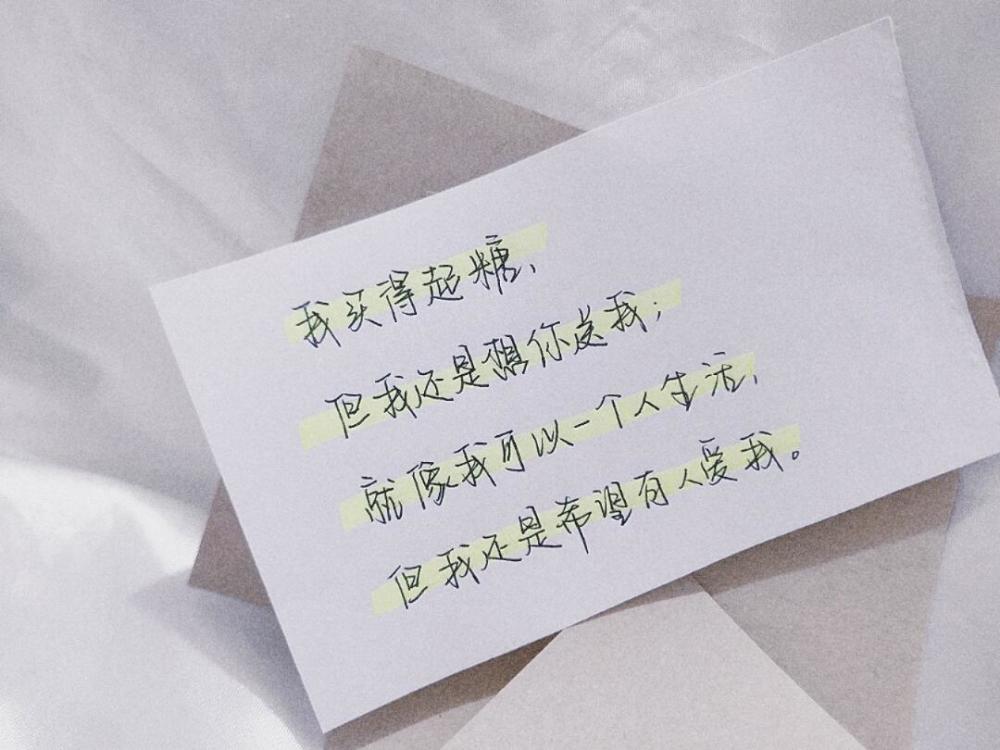 我买得起糖,
但我还是想你送我;
就像我可以一个人生活,
但我还是希望有人爱我。